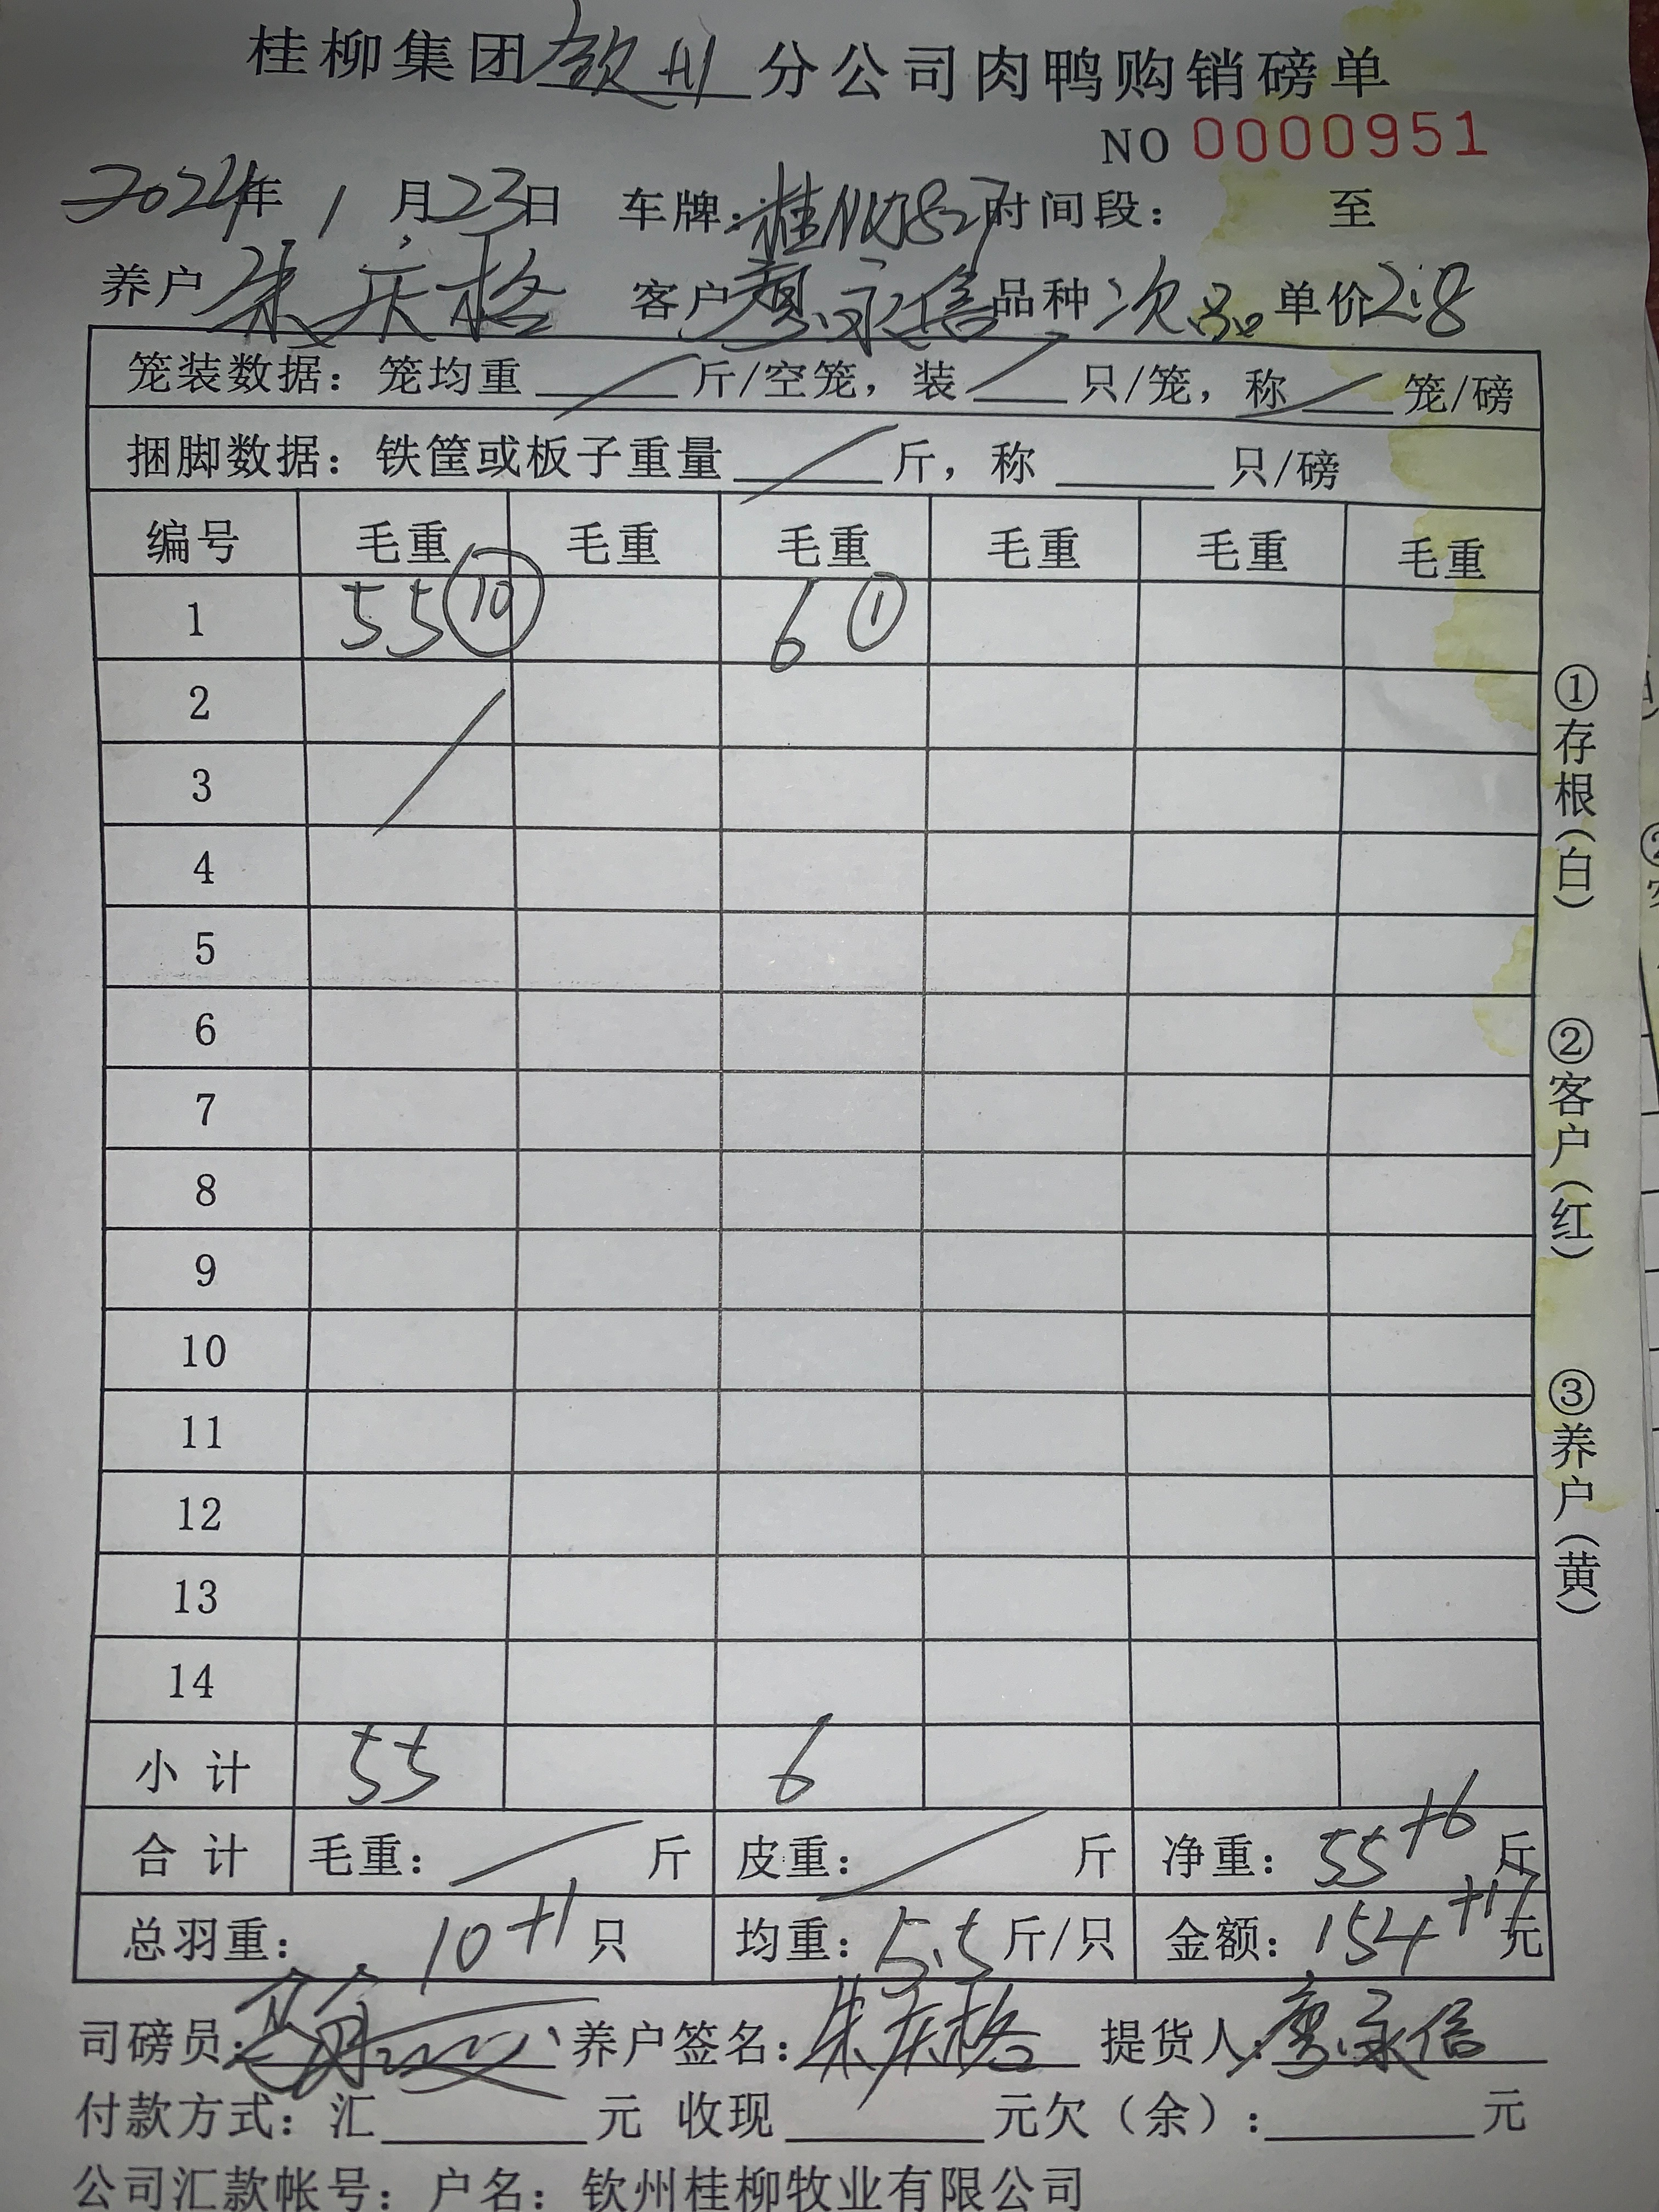 桂柳集团钦州分公司肉鸭购销磅单
NO 0000951
2024年 1 月23日 车牌: 时间段: 至
养户 朱庆格 客户 廖永信 品种 次品 单价2.8
笼装数据: 笼均重 斤/空笼, 装 只/笼, 称 笼/磅
捆脚数据: 铁筐或板子重量 斤, 称 只/磅
编号 毛重 毛重 毛重 毛重 毛重 毛重
1 55 ⑩ 6 ①
2
3
4
5
6
7
8
9
10
11
12
13
14
小计 55 6
合计 毛重: 斤 皮重: 斤 净重: 55+6 斤
总羽重: 10+1 只 均重: 5.5 斤/只 金额: 154+17 元
司磅员: 养户签名: 朱庆格 提货人: 廖永信
付款方式: 汇 元 收现 元欠(余): 元
公司汇款帐号: 户名: 钦州桂柳牧业有限公司
①存根(白)
②客户(红)
③养户(黄)